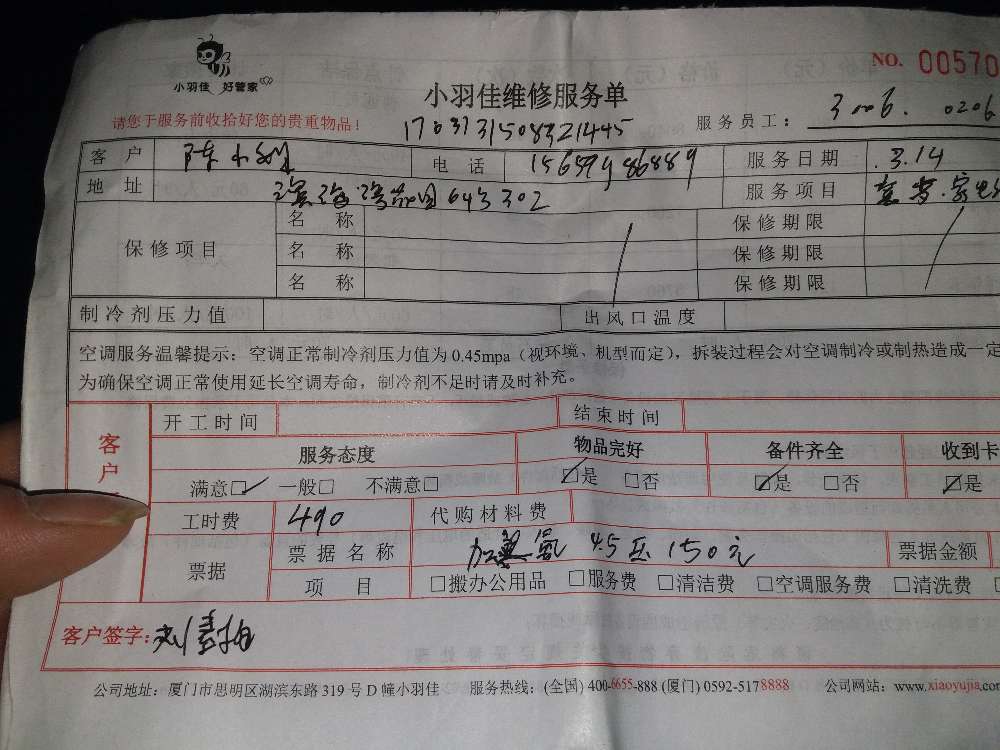 小羽佳 好管家
NO. 00570
小羽佳维修服务单
请您于服务前收拾好您的贵重物品！
服务员工： 3006. 0206
客户 电话 服务日期 3.14
地址 643 302 服务项目
保修项目 名称 保修期限
名称 保修期限
名称 保修期限
制冷剂压力值 出风口温度
空调服务温馨提示：空调正常制冷剂压力值为0.45mpa（视环境、机型而定），拆装过程会对空调制冷或制热造成一定
为确保空调正常使用延长空调寿命，制冷剂不足时请及时补充。
客户 开工时间 结束时间
服务态度 物品完好 备件齐全 收到卡
满意□✓ 一般□ 不满意□ ☑是 □否 ☑是 □否 ☑是
工时费 490 代购材料费
票据 票据名称 加 氟 4.5压 150元 票据金额
项目 □搬办公用品 □服务费 □清洁费 □空调服务费 □清洗费
客户签字：
公司地址：厦门市思明区湖滨东路319号D幢小羽佳 服务热线：(全国) 400-6655-888 (厦门) 0592-5178888 公司网站：www.xiaoyujia.com